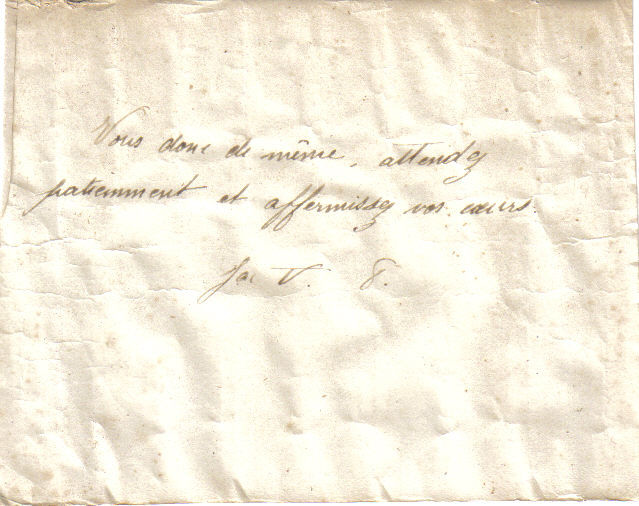 Vous donc de même, attendez
patiemment et affermissez vos cœurs.
Jac V. 8.